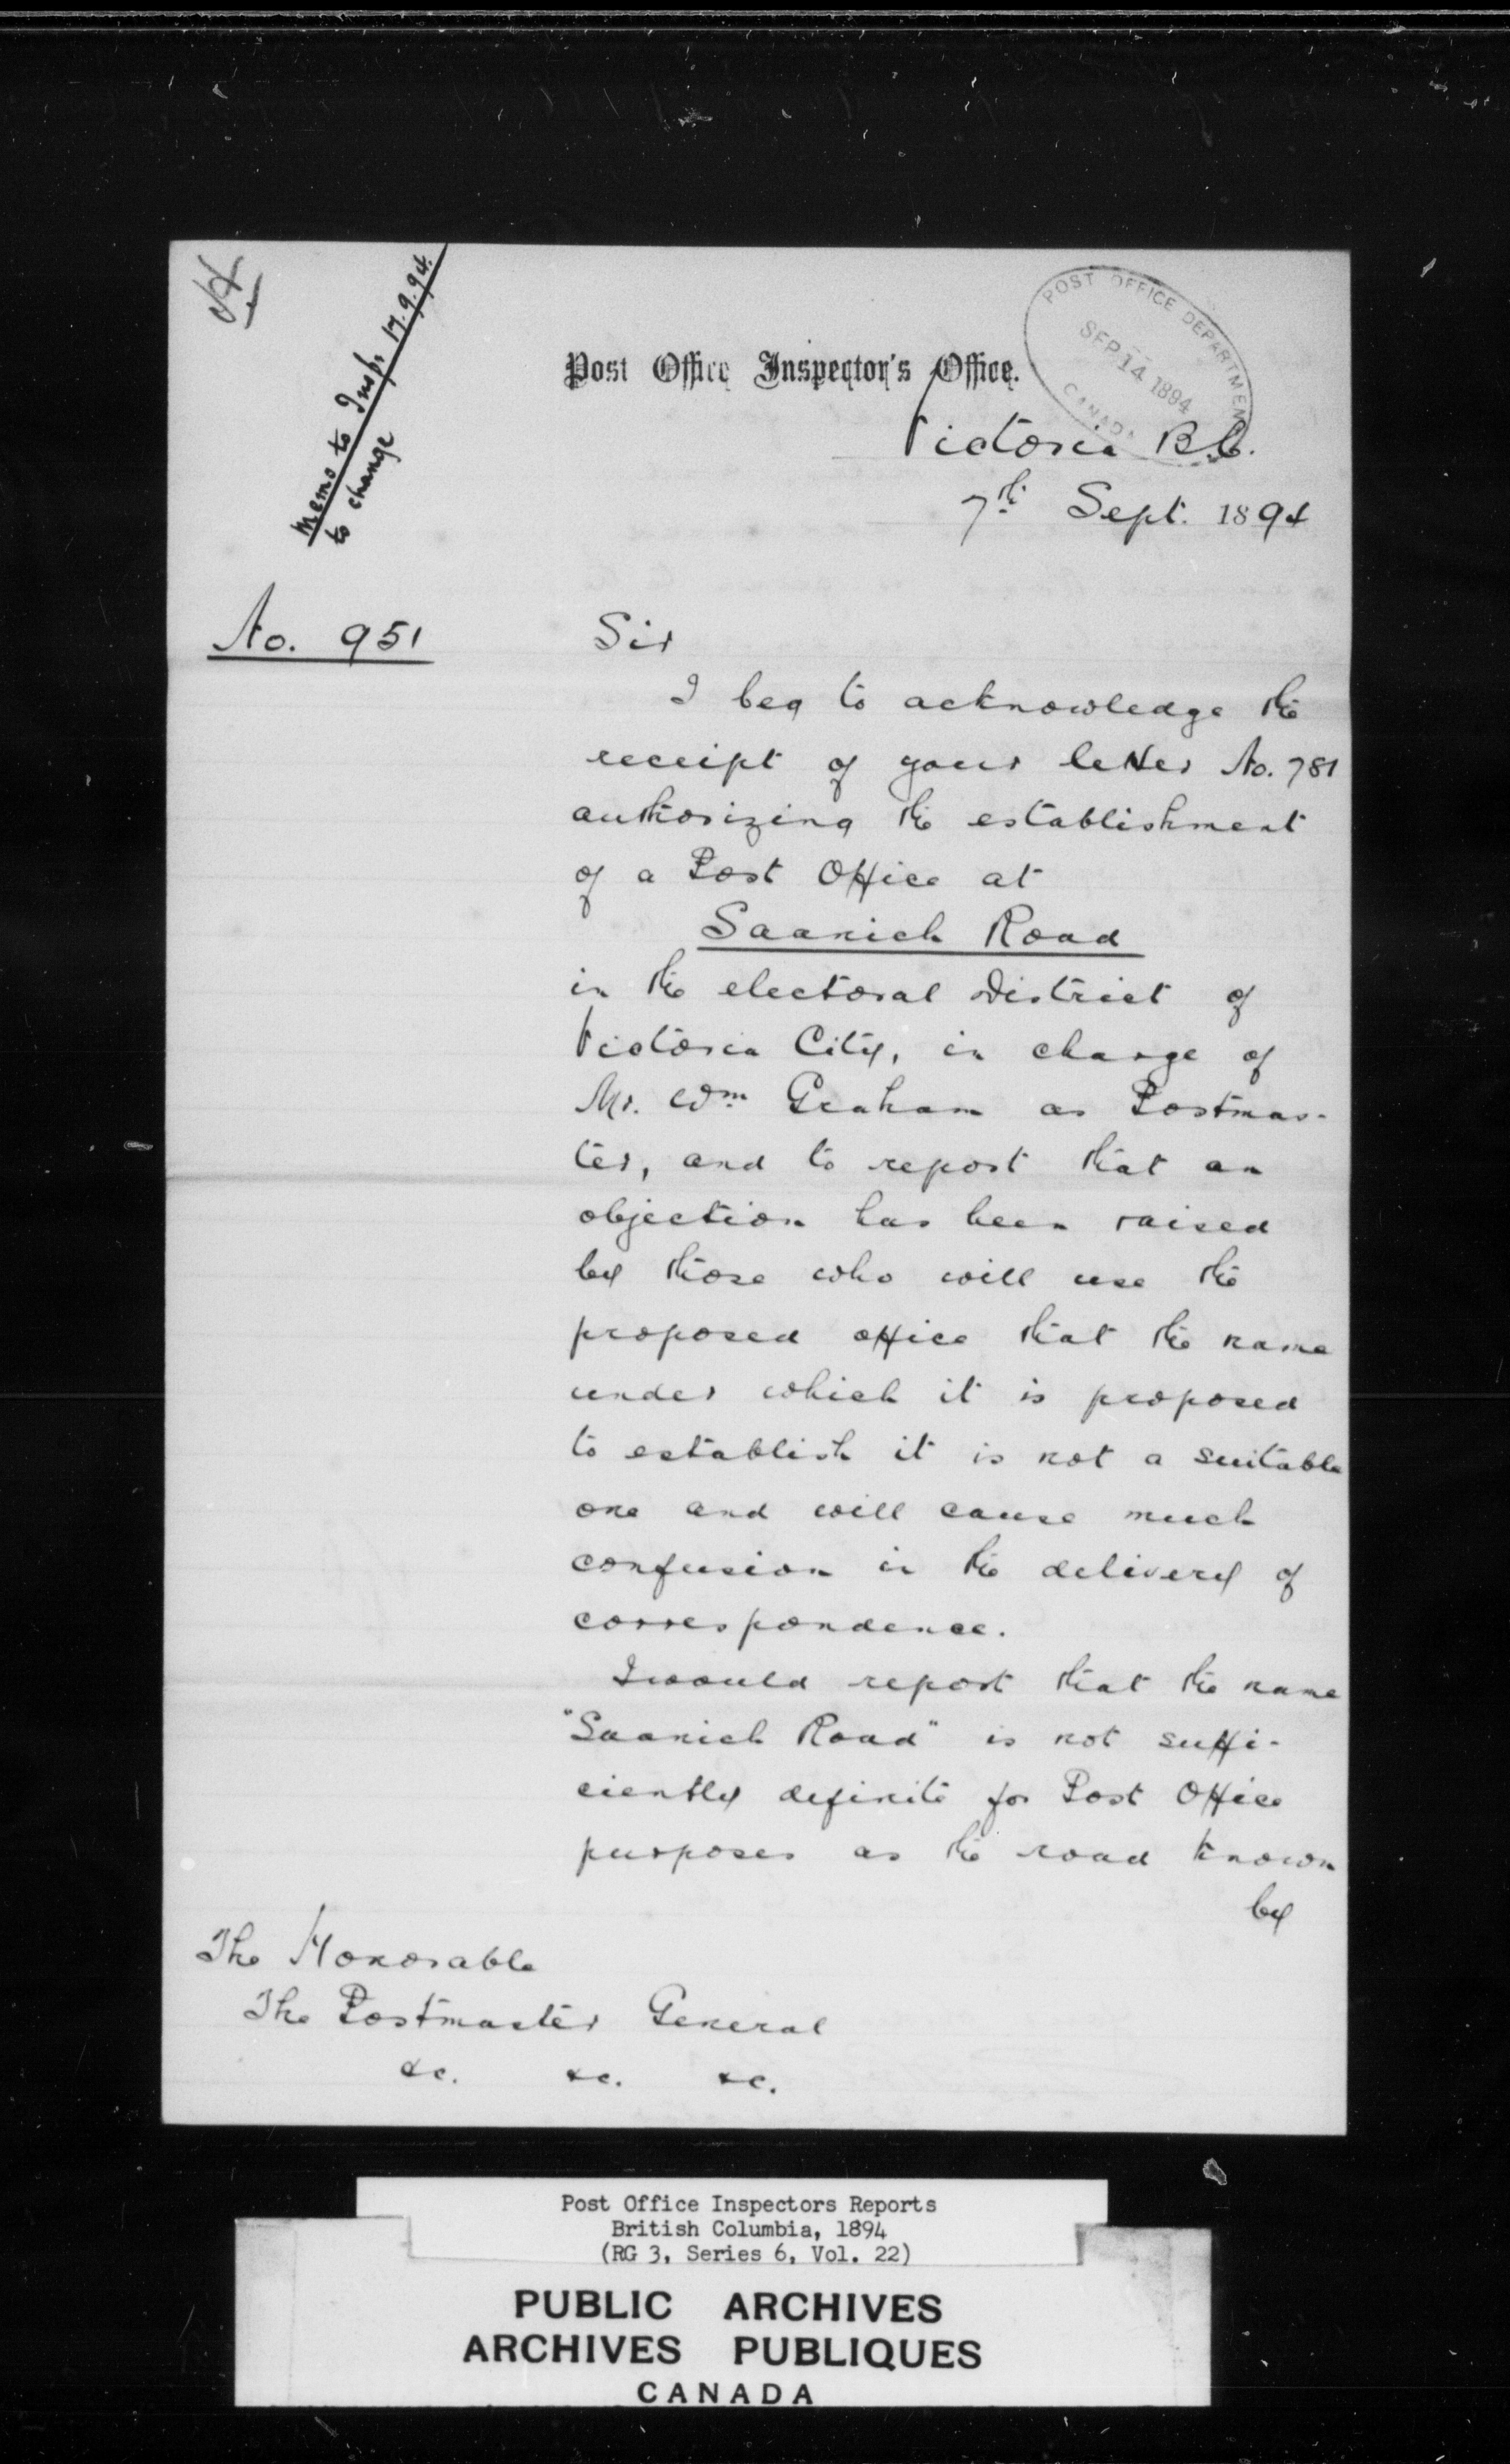 Memo to Insp. 17.9.94.
to change
POST OFFICE DEPARTMENT
SEP 14 1894
CANADA
Post Office Inspector's Office.
Victoria B.C.
7th Sept. 1894
No. 951
Sir
I beg to acknowledge the
receipt of your letter No. 781
authorizing the establishment
of a Post Office at
Saanich Road
in the electoral district of
Victoria City, in charge of
Mr. Wm Graham as Postmas-
ter, and to report that an
objection has been raised
by those who will use the
proposed office that the name
under which it is proposed
to establish it is not a suitable
one and will cause much
confusion in the delivery of
correspondence.
I would report that the name
"Saanich Road" is not suffi-
ciently definite for Post Office
purposes as the road known
by
The Honorable
The Postmaster General
&c. &c. &c.
Post Office Inspectors Reports
British Columbia, 1894
(RG 3, Series 6, Vol. 22)
PUBLIC ARCHIVES
ARCHIVES PUBLIQUES
CANADA